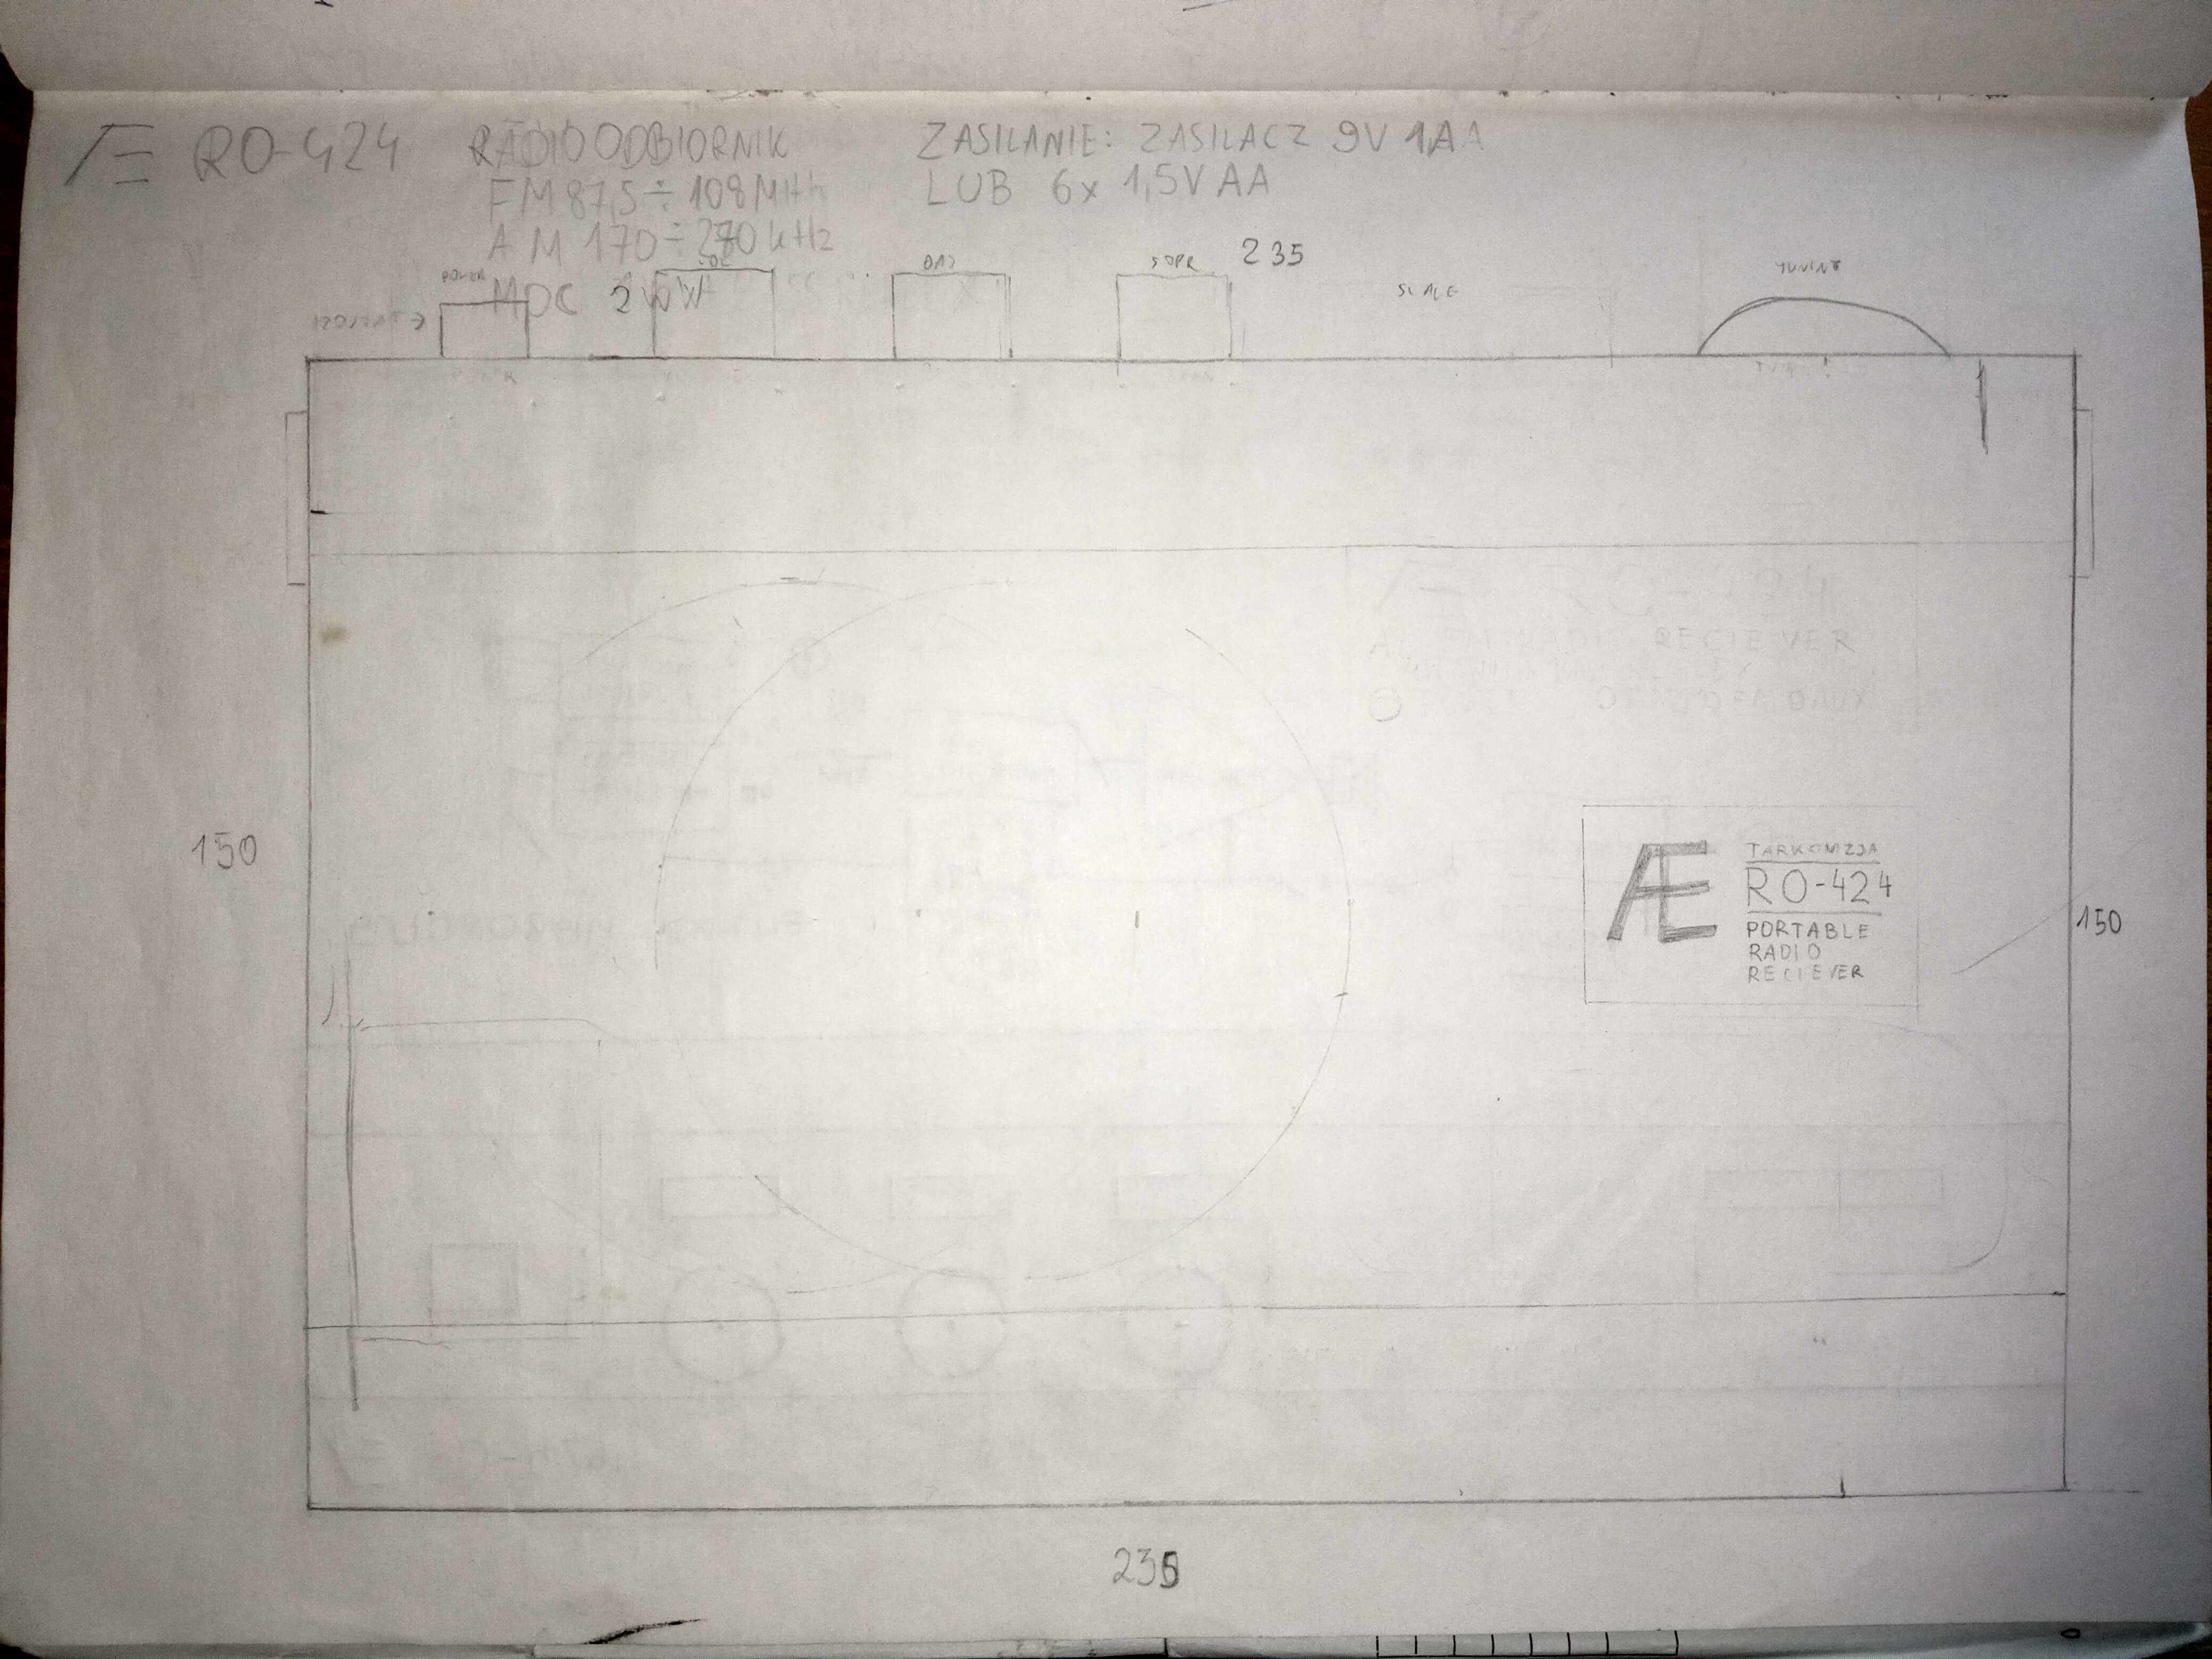 Æ RO-424 RADIOODBIORNIK
FM 87,5 ÷ 108 MHz
AM 170 ÷ 270 kHz
MOC 2W
ZASILANIE: ZASILACZ 9V 1A
LUB 6x 1,5V AA
POWER
SOPR
235
SCALE
TUNING
RECIEVER
150
Æ
TARKOMZJA
RO-424
PORTABLE
RADIO
RECIEVER
150
235